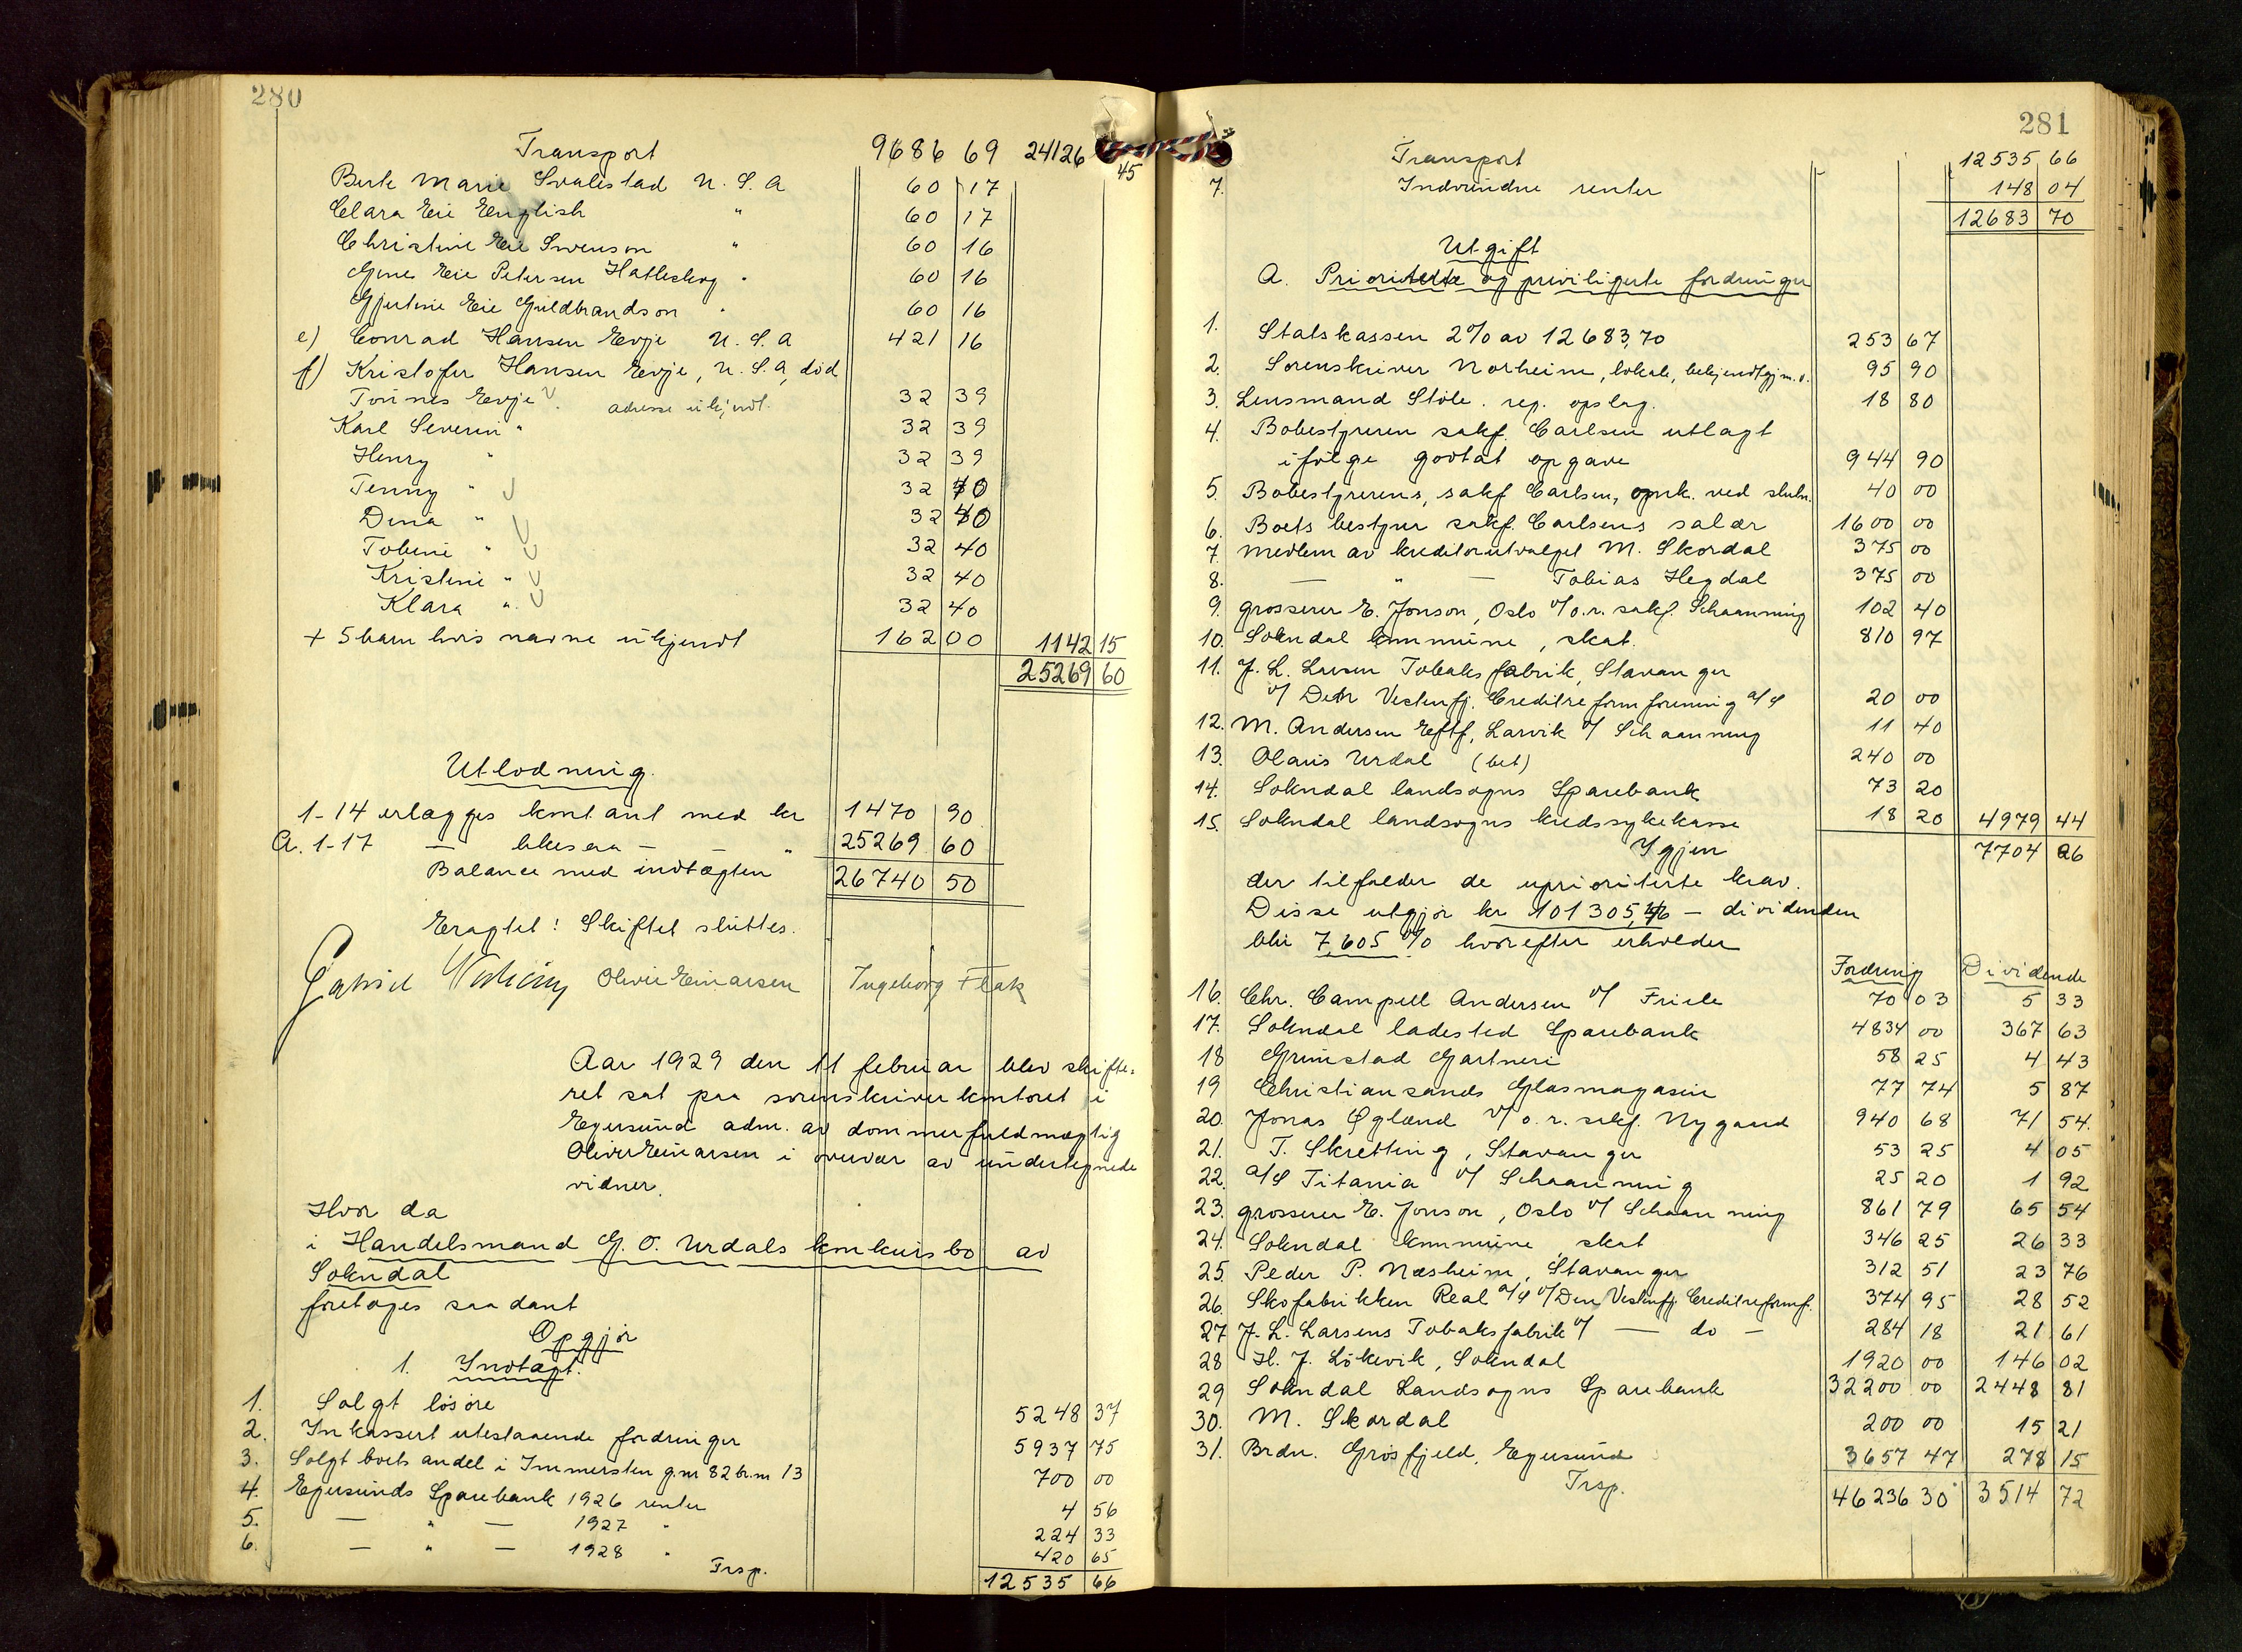 280
Transport 9686 69 24126 45
Berte Marie Svalestad U.S.A 60 17
Clara Eie English " 60 17
Christine Eie Swenson " 60 16
Gine Eie Petersen Hatleskog " 60 16
Gjertine Eie Guldbrandson " 60 16
e) Conrad Hansen Evje U.S.A 421 16
f) Kristofer Hansen Evje, U.S.A, död
Tönnes Evje adresse ukjendt. 32 39
Karl Severin " 32 39
Henry " 32 39
Jenny " 32 40
Dina " 32 40
Tobine " 32 40
Kristine " 32 40
Klara " 32 40
+ 5 barn hvis navne ukjendt 162 00 1142 15
25269 60
Utlodning.
1-14 erlægges kontant med kr 1470 90
A. 1-17 — likesaa — — " 25269 60
Balance med indtægten 26740 50
Eragtet: Skiftet sluttes.
Gabriel Norheim Oliver Einarsen Ingeborg Flak
Aar 1929 den 11 februar blev skifte-
ret sat paa sorenskriverkontoret i
Egersund adm. av dommerfuldmægtig
Oliver Einarsen i overvær av undertegnede
vidner.
Hvor da
i Handelsmand G. O. Urdals konkursbo av
Sokndal
foretoges saadant
Opgjör
1. Indtægt.
1. Solgt lösöre 5248 37
2. Inkassert utestaaende fordringer 5937 75
3. Solgt boets andel i Immersten g.nr 82 br.nr 13 700 00
4. Egersunds Sparebank 1926 renter 4 56
5. — " — 1927 " 224 33
6. — " — 1928 " 420 65
Trsp. 12535 66
281
Transport 12535 66
7. Indvundne renter 148 04
12683 70
Utgift
A. Prioriterte og priviligerte fordringer
1. Statskassen 2% av 12683,70 253 67
2. Sorenskriver Norheim, lokale, bekjendtgj. m.v. 95 90
3. Lensmand Stöle. reg. opslag. 18 80
4. Bobestyreren sakf. Carlsen utlagt
ifölge godtat opgave 944 90
5. Bobestyrerens, sakf Carlsen, opvk. ved slutn. 40 00
6. Boets bestyrer sakf. Carlsens salær 1600 00
7. Medlem av kreditorutvalget M. Skordal 375 00
8. — " — Tobias Hegdal 375 00
9. grosserer E. Jonson, Oslo v/ o.r. sakf. Schaanning 102 40
10. Sokndal kommune, skat. 810 97
11. J. L. Larsen Tobaksfabrik, Stavanger
v/ Den Vestenfj. Creditreformforening a/s 20 00
12. M. Andersen Eftf, Larvik v/ Schaanning 11 40
13. Olaus Urdal (bet) 240 00
14. Sokndal landsogns Sparebank 73 20
15. Sokndal landsogns kredssykekasse 18 20 4979 44
Igjen 7704 26
der tilfalder de uprioriterte krav.
Disse utgjör kr 101305,46 — dividenden
blir 7,605 % hvorefter erholder
Fordring Dividende
16. Chr. Campell Andersen v/ Friele 70 03 5 33
17. Sokndal ladested Sparebank 4834 00 367 63
18 Grimstad Gartneri 58 25 4 43
19 Christiansands Glasmagasin 77 74 5 87
20. Jonas Øglænd v/ o.r. sakf. Nygaard 940 68 71 54.
21. T. Skretting, Stavanger 53 25 4 05
22. a/s Titania v/ Schaanning 25 20 1 92
23. grosserer E. Jonson, Oslo v/ Schaanning 861 79 65 54
24. Sokndal kommune, skat 346 25 26 33
25. Peder P. Næsheim, Stavanger 312 51 23 76
26. Skofabrikken Real a/s v/ Den Vestenfj. Creditreformf. 374 95 28 52
27 J. L. Larsens Tobaksfabrik v/ — do — 284 18 21 61
28 H. J. Lökevik, Sokndal 1920 00 146 02
29 Sokndal Landsogns Sparebank 32200 00 2448 81
30. M. Skordal 200 00 15 21
31. Brdr. Grösfjeld, Egersund 3657 47 278 15
Trsp. 46236 30 3514 72